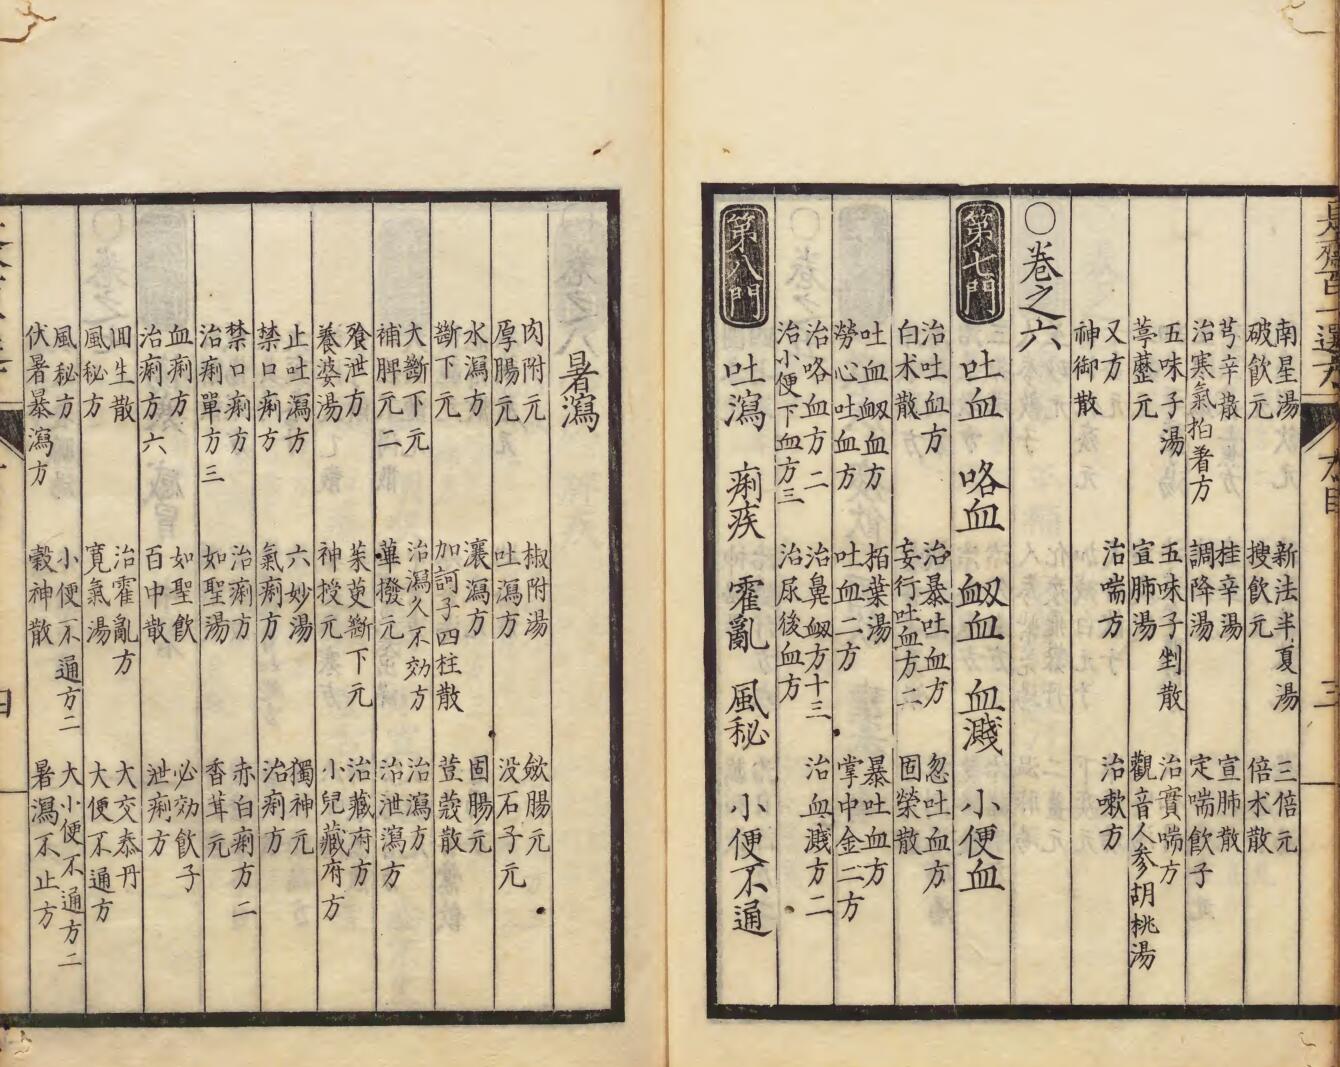 南星湯 新法半夏湯 三倍元
破飲元 搜飲元 倍术散
芎辛散 桂辛湯 宣肺散
治寒氣拍着方 調降湯 定喘飲子
五味子湯 五味子剉散 治實喘方
葶藶元 宣肺湯 觀音人參胡桃湯
又方 治喘方 治嗽方
神御散
○卷之六
第七門 吐血 咯血 衂血 血濺 小便血
治吐血方 治暴吐血方 忽吐血方
白术散 妄行吐血方二 固榮散
吐血衂血方 柏葉湯 暴吐血方
勞心吐血方 吐血二方 掌中金二方
治咯血方二 治鼻衂方十三 治血濺方二
治小便下血方三 治尿後血方
第八門 吐瀉 痢疾 霍亂 風秘 小便不通
暑瀉
肉附元 椒附湯 斂腸元
厚腸元 吐瀉方 没石子元
水瀉方 瀼瀉方 固腸元
斷下元 加訶子四柱散 荳蔻散
大斷下元 治瀉久不効方 治瀉方
補脾元二 蓽撥元 治泄瀉方
飱泄方 茱萸斷下元 治藏府方
養婆湯 神授元 小兒藏府方
止吐瀉方 六妙湯 獨神元
禁口痢方 氣痢方 治痢方
禁口痢方 治痢方 赤白痢方二
治痢單方三 如聖湯 香茸元
血痢方 如聖飲 必効飲子
治痢方六 百中散 泄痢方
回生散 治霍亂方 大交泰丹
風秘方 寬氣湯 大便不通方
風秘方 小便不通方二 大小便不通方二
伏暑暴瀉方 穀神散 暑瀉不止方